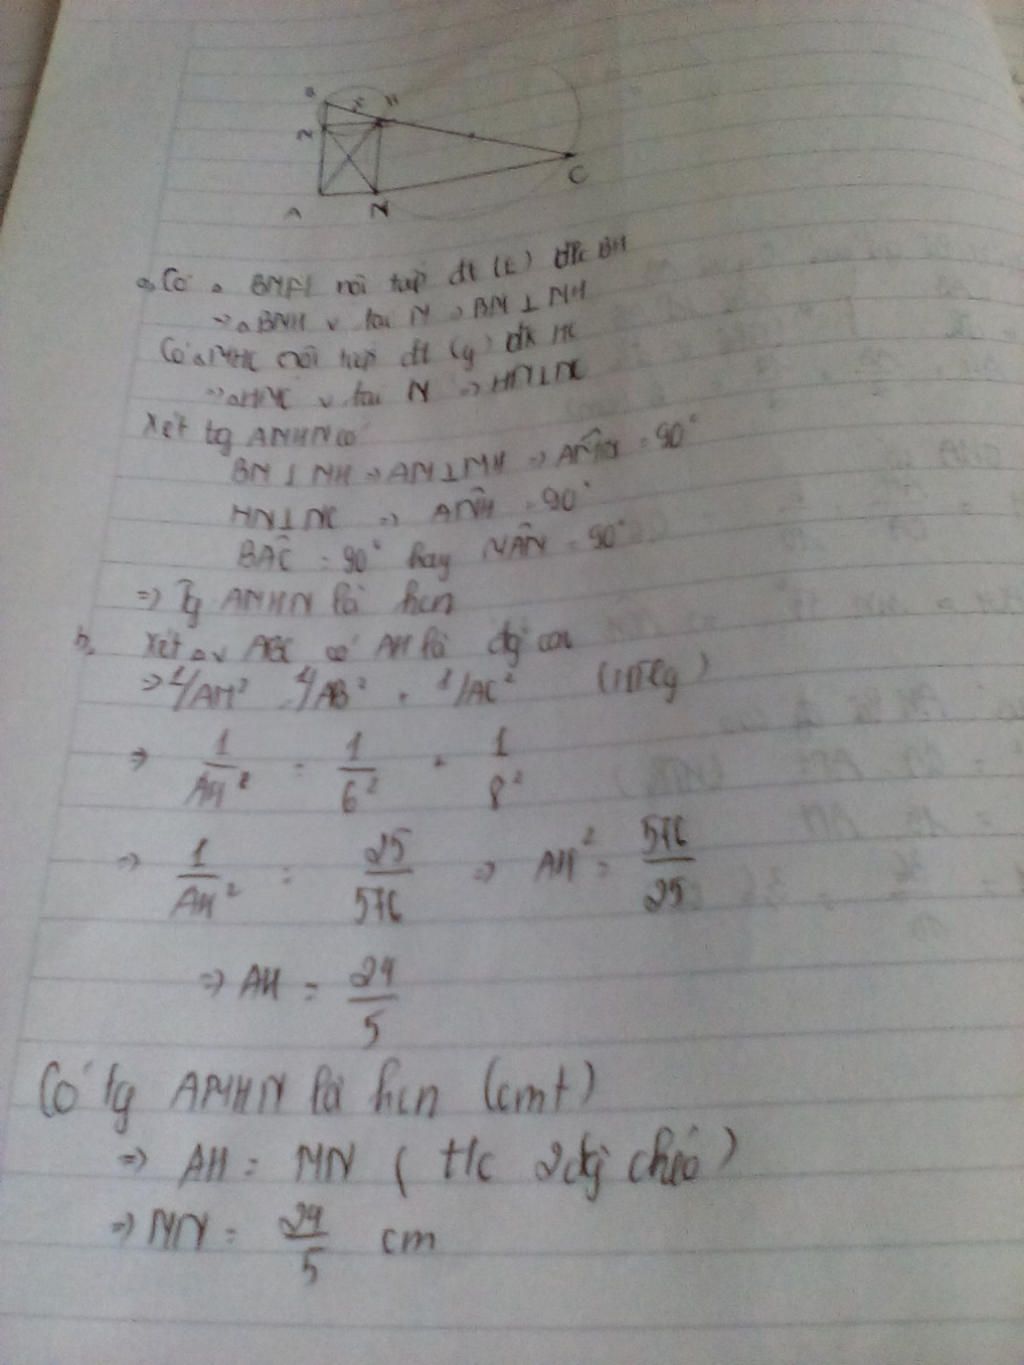 B
H
M
C
A
N
a, Có △ BMH nội tiếp đt (E) đk BH
=> △BMH v tại M => BM ⊥ MH
Có △NHC nội tiếp đt đk HC
=> △HNC v tại N => HN⊥NC
Xét tg AMHN có
BM ⊥ MH => AM⊥MH => AM̂H = 90°
HN⊥NC => AN̂H = 90°
BÂC = 90° hay MÂN = 90°
=> Tg AMHN là hcn
b, Xét △v ABC có AH là đg cao
=> 1/AH² = 1/AB² + 1/AC² (HTLg)
=> 1/AH² = 1/6² + 1/8²
=> 1/AH² = 25/576 => AH² = 576/25
=> AH = 24/5
Có tg AMHN là hcn (cmt)
=> AH = MN ( t/c 2 đg chéo )
=> MN = 24/5 cm